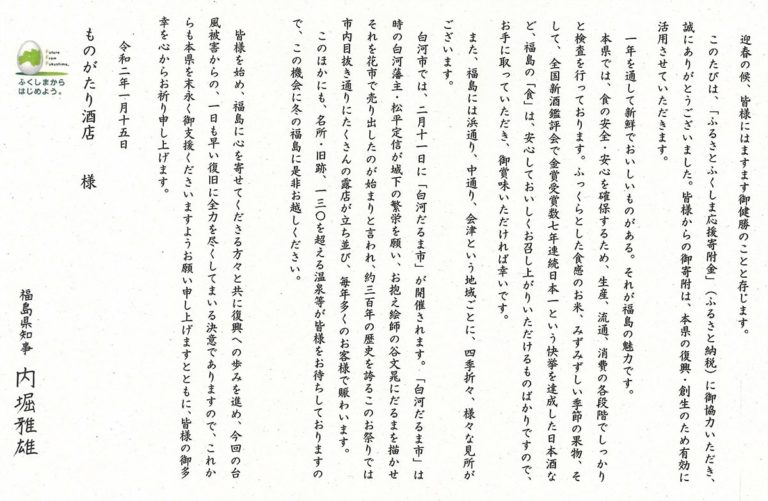 迎春の候、皆様にはますます御健勝のことと存じます。
このたびは、「ふるさとふくしま応援寄附金」（ふるさと納税）に御協力いただき、
誠にありがとうございました。皆様からの御寄附は、本県の復興・創生のため有効に
活用させていただきます。
一年を通して新鮮でおいしいものがある。それが福島の魅力です。
本県では、食の安全・安心を確保するため、生産、流通、消費の各段階でしっかり
と検査を行っております。ふっくらとした食感のお米、みずみずしい季節の果物、そ
して、全国新酒鑑評会で金賞受賞数七年連続日本一という快挙を達成した日本酒な
ど、福島の「食」は、安心しておいしくお召し上がりいただけるものばかりですので、
お手に取っていただき、御賞味いただければ幸いです。
また、福島には浜通り、中通り、会津という地域ごとに、四季折々、様々な見所が
ございます。
白河市では、二月十一日に「白河だるま市」が開催されます。「白河だるま市」は
時の白河藩主・松平定信が城下の繁栄を願い、お抱え絵師の谷文晁にだるまを描かせ
それを花市で売り出したのが始まりと言われ、約三百年の歴史を誇るこのお祭りでは
市内目抜き通りにたくさんの露店が立ち並び、毎年多くのお客様で賑わいます。
このほかにも、名所・旧跡、一三〇を超える温泉等が皆様をお待ちしておりますの
で、この機会に冬の福島に是非お越しください。
皆様を始め、福島に心を寄せてくださる方々と共に復興への歩みを進め、今回の台
風被害からの、一日も早い復旧に全力を尽くしてまいる決意でありますので、これか
らも本県を末永く御支援くださいますようお願い申し上げますとともに、皆様の御多
幸を心からお祈り申し上げます。
令和二年一月十五日
ものがたり酒店　様
福島県知事　内堀雅雄
Future From Fukushima.
ふくしまから
はじめよう。